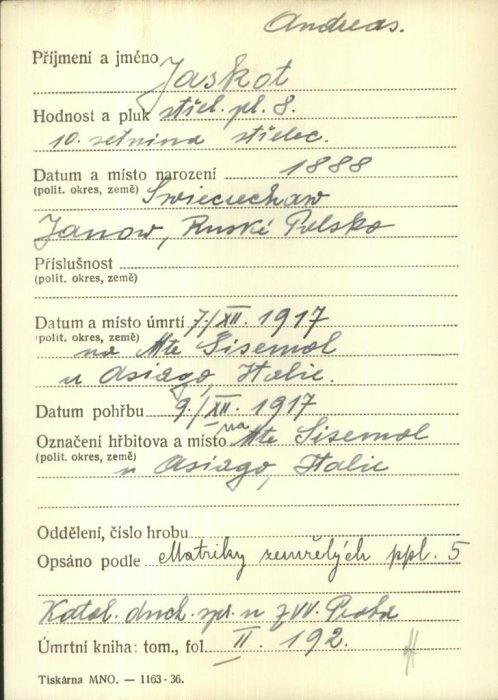 Andreas.
Příjmení a jméno Jaskot
Hodnost a pluk střel. pl. 8.
10. setnina střelec.
Datum a místo narození 1888
(polit. okres, země) Swieciechaw
Janow, Ruské Polsko
Příslušnost
(polit. okres, země)
Datum a místo úmrtí 7./XII. 1917
(polit. okres, země) na Mte Sisemol
u Asiago, Italie.
Datum pohřbu 9./XII. 1917
Označení hřbitova a místo na Mte Sisemol
(polit. okres, země)
u Asiago, Italie
Oddělení, číslo hrobu
Opsáno podle Matriky zemřelých ppl. 5
Katol. duch. spr. u ZVV. Praha
Úmrtní kniha: tom., fol. II. 192.
Tiskárna MNO. — 1163-36.